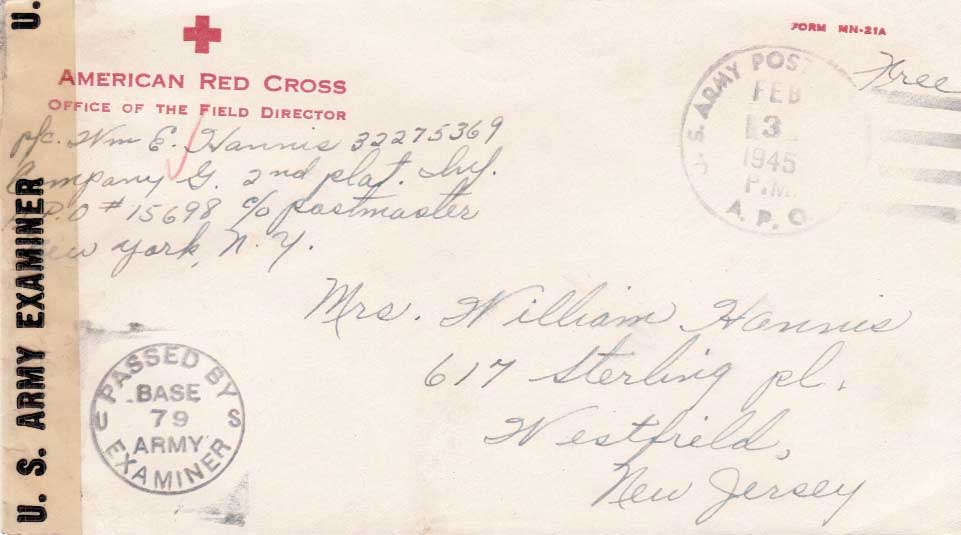 U. S. ARMY EXAMINER U.
AMERICAN RED CROSS
OFFICE OF THE FIELD DIRECTOR
FORM MN-21A
Free
U. S. ARMY POST
FEB
3
1945
P.M.
A. P. O.
pfc. Wm E. Hannis 32275369
Company G. 2nd plat. Inf.
A.P.O # 15698 c/o postmaster
New York, N. Y.
Mrs. William Hannis
617 Sterling pl.
Westfield,
New Jersey
PASSED BY
BASE
79
ARMY
EXAMINER
U S